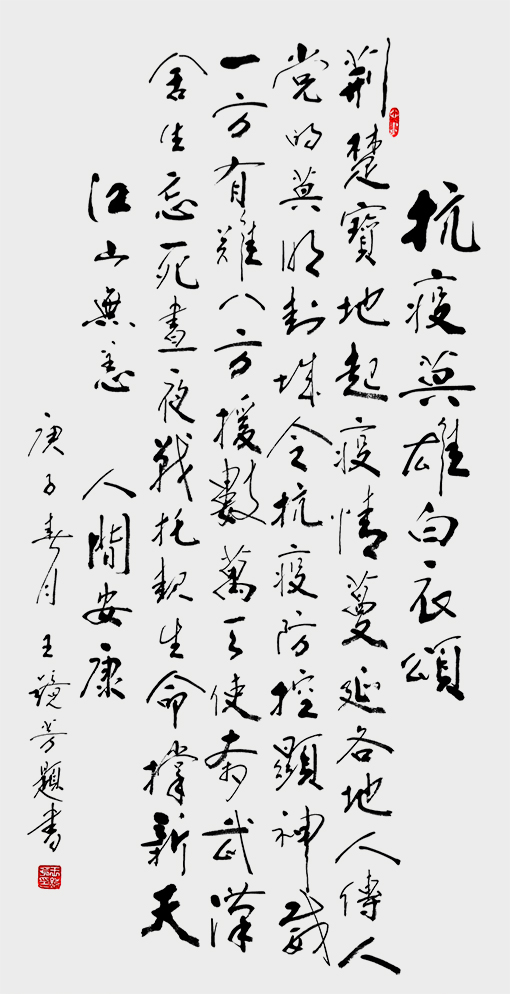 抗疫英雄白衣頌
荆楚寶地起疫情蔓延各地人傳人
党的英明封城令抗疫防控顯神威
一方有難八方援數萬天使奔武漢
舍生忘死晝夜戰托起生命撐新天
江山無恙 人間安康
庚子春月王鏡芳題書